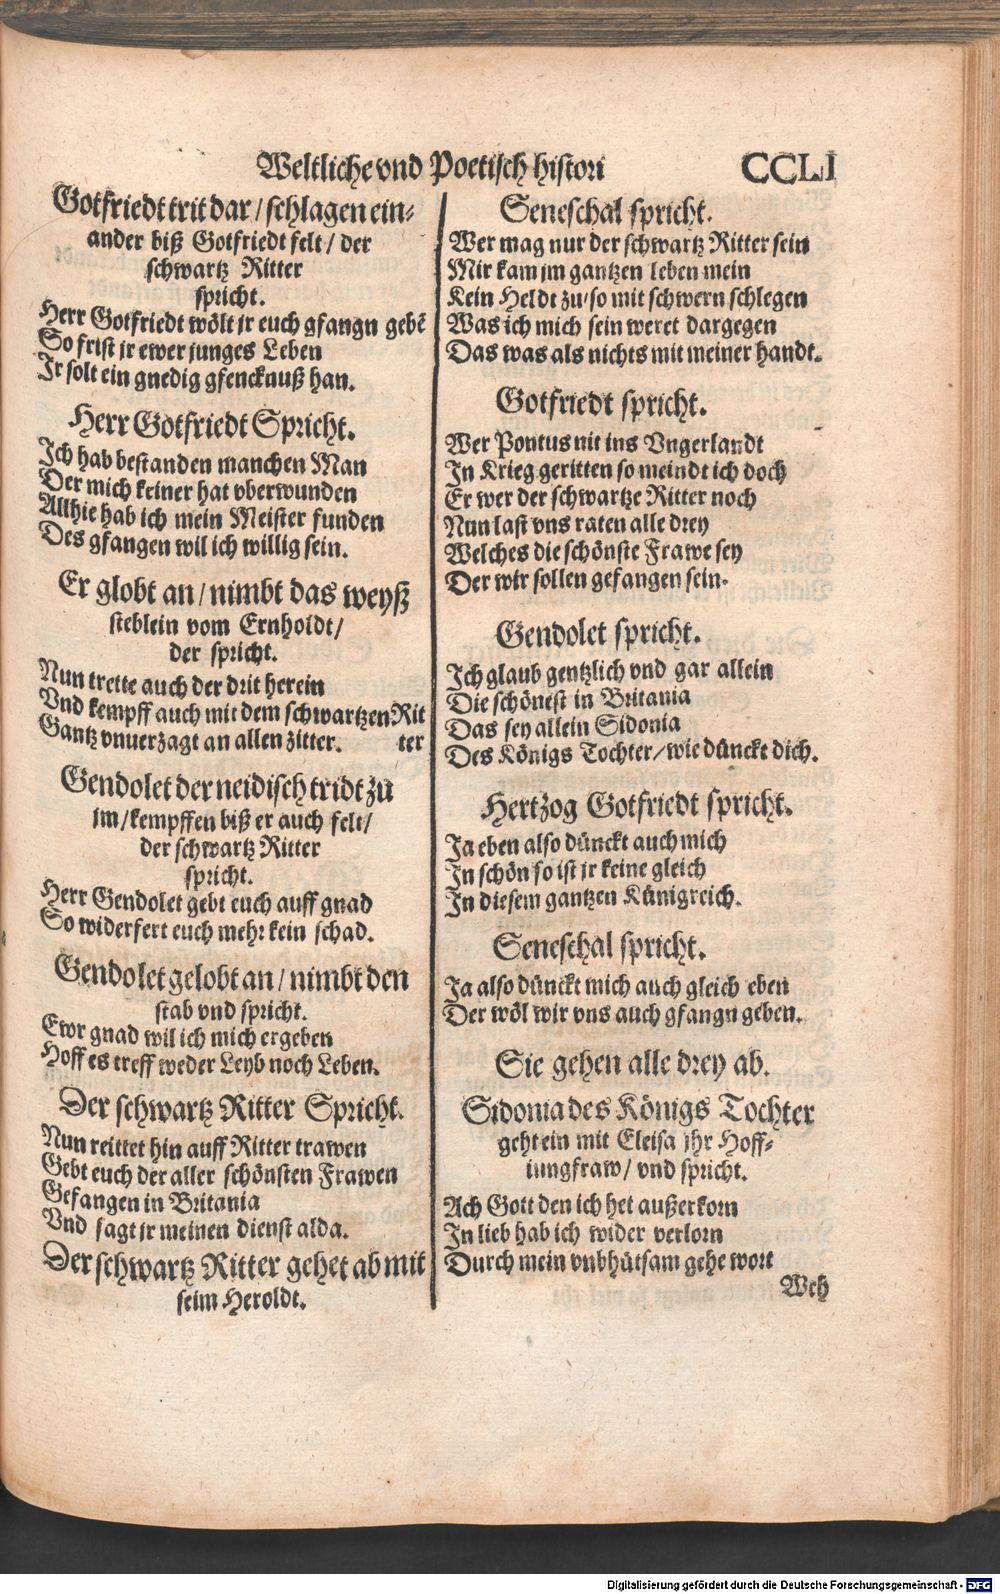 Weltliche vnd Poetisch histori CCLI
Gotfriedt trit dar / schlagen ein⸗
ander biß Gotfriedt felt / der
schwartz Ritter
spricht.
Herr Gotfriedt wölt jr euch gfangn gebē
So frist jr ewer junges Leben
Jr solt ein gnedig gfencknuß han.
Herr Gotfriedt Spricht.
Ich hab bestanden manchen Man
Der mich keiner hat vberwunden
Allhie hab ich mein Meister funden
Des gfangen wil ich willig sein.
Er globt an / nimbt das weyß
steblein vom Ernholdt /
der spricht.
Nun trette auch der drit herein
Vnd kempff auch mit dem schwartzen Rit
Gantz vnuerzagt an allen zitter. ter
Gendolet der neidisch tridt zu
jm / kempffen biß er auch felt /
der schwartz Ritter
spricht.
Herr Gendolet gebt euch auff gnad
So widerfert euch mehr kein schad.
Gendolet gelobt an / nimbt den
stab vnd spricht.
Ewr gnad wil ich mich ergeben
Hoff es treff weder Leyb noch Leben.
Der schwartz Ritter Spricht.
Nun reittet hin auff Ritter trawen
Gebt euch der aller schönsten Frawen
Gefangen in Britania
Vnd sagt jr meinen dienst alda.
Der schwartz Ritter gehet ab mit
seim Heroldt.
Seneschal spricht.
Wer mag nur der schwartz Ritter sein
Mir kam jm gantzen leben mein
Kein Heldt zu / so mit schwern schlegen
Was ich mich sein weret dargegen
Das was als nichts mit meiner handt.
Gotfriedt spricht.
Wer Pontus nit ins Vngerlandt
In Krieg geritten so meindt ich doch
Er wer der schwartze Ritter noch
Nun last vns raten alle drey
Welches die schönste Frawe sey
Der wir sollen gefangen sein.
Gendolet spricht.
Ich glaub gentzlich vnd gar allein
Die schönest in Britania
Das sey allein Sidonia
Des Königs Tochter / wie dünckt dich.
Hertzog Gotfriedt spricht.
Ja eben also dünckt auch mich
In schön so ist jr keine gleich
In diesem gantzen Künigreich.
Seneschal spricht.
Ja also dünckt mich auch gleich eben
Der wöl wir vns auch gfangn geben.
Sie gehen alle drey ab.
Sidonia des Königs Tochter
geht ein mit Eleisa jhr Hoff⸗
iungfraw / vnd spricht.
Ach Gott den ich het außerkorn
In lieb hab ich wider verlorn
Durch mein vnbhütsam gehe wort
Weh
Digitalisierung gefördert durch die Deutsche Forschungsgemeinschaft - DFG